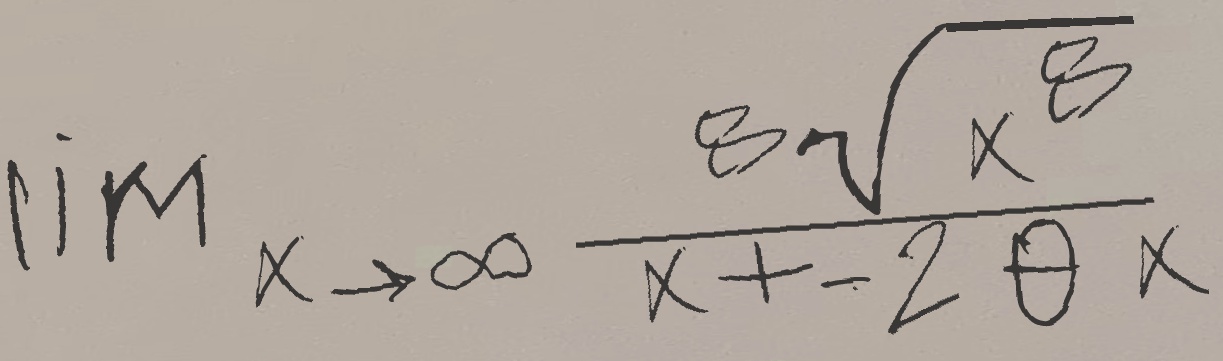 \lim_{x \to \infty} \frac{8\sqrt{x^8}}{x + -2 \theta x}